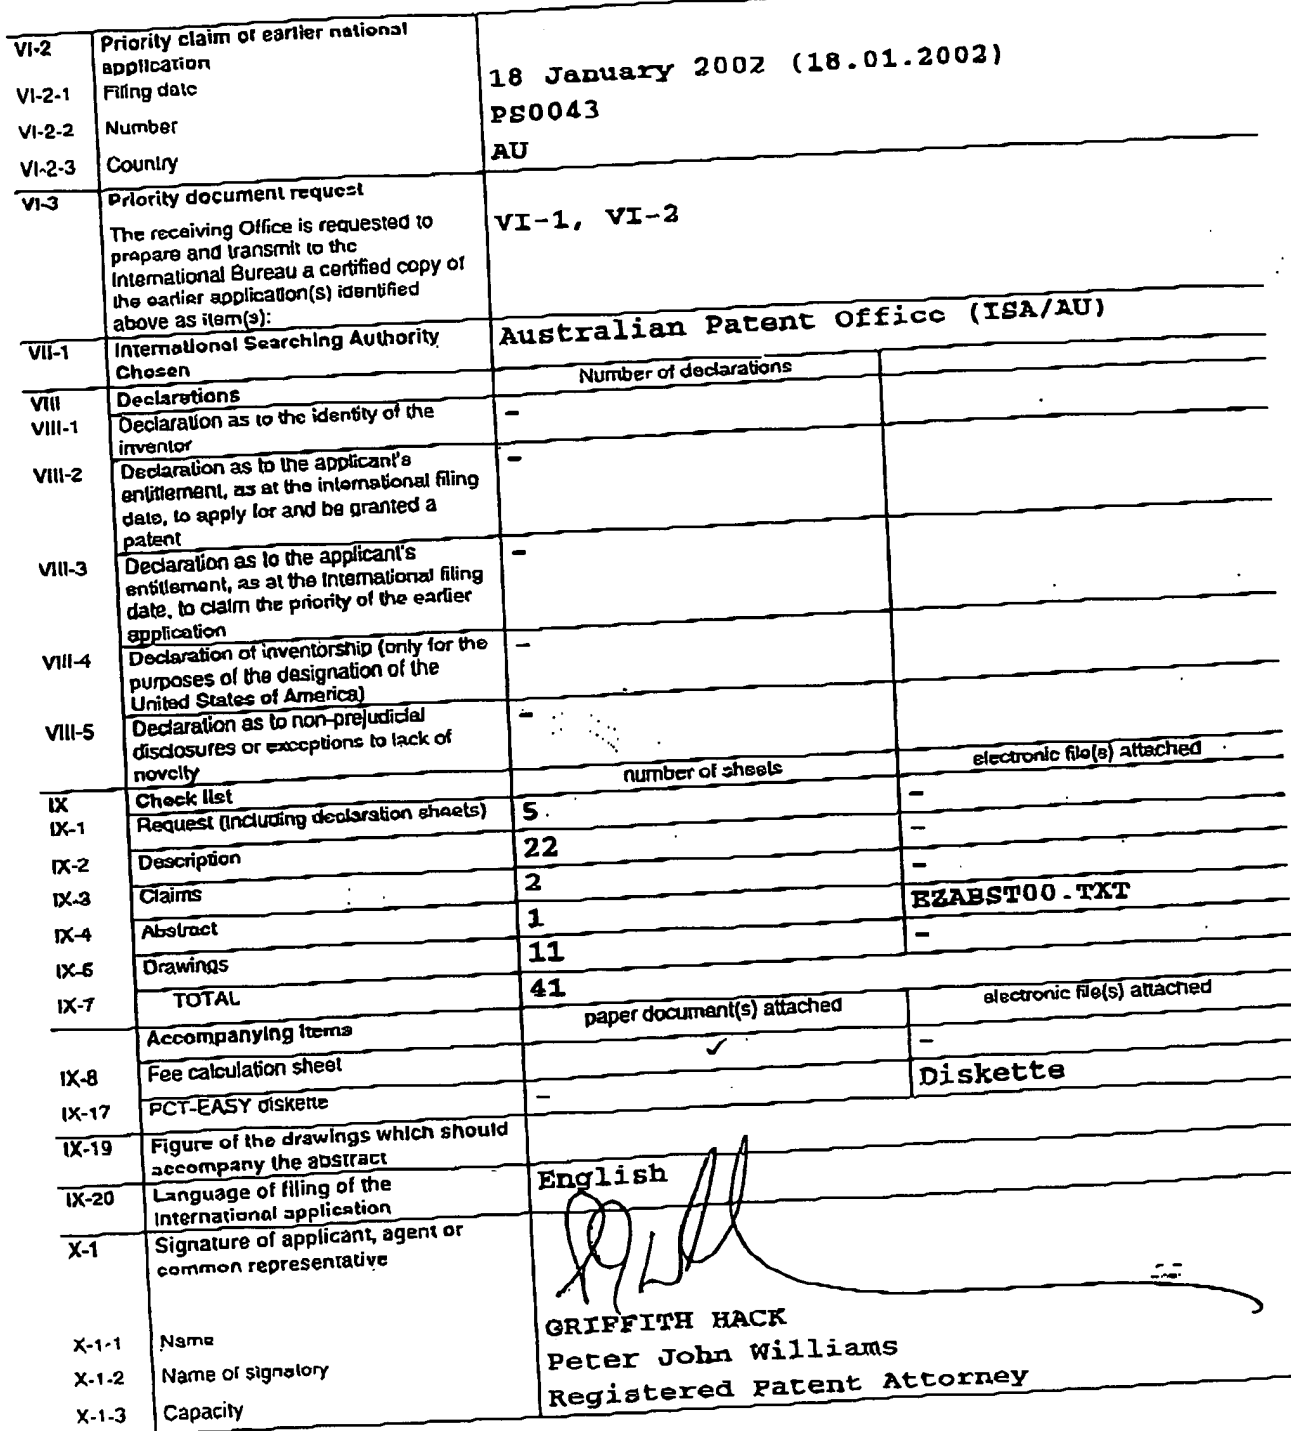 VI-2 Priority claim of earlier national
application
VI-2-1 Filing date 18 January 2002 (18.01.2002)
VI-2-2 Number PS0043
VI-2-3 Country AU
VI-3 Priority document request
The receiving Office is requested to VI-1, VI-2
prepare and transmit to the
International Bureau a certified copy of
the earlier application(s) identified
above as item(s):
VII-1 International Searching Authority Australian Patent Office (ISA/AU)
Chosen
VIII Declarations Number of declarations
VIII-1 Declaration as to the identity of the –
inventor
VIII-2 Declaration as to the applicant's –
entitlement, as at the international filing
date, to apply for and be granted a
patent
VIII-3 Declaration as to the applicant's –
entitlement, as at the international filing
date, to claim the priority of the earlier
application
VIII-4 Declaration of inventorship (only for the –
purposes of the designation of the
United States of America)
VIII-5 Declaration as to non-prejudicial –
disclosures or exceptions to lack of
novelty
IX Check list number of sheets electronic file(s) attached
IX-1 Request (including declaration sheets) 5 –
IX-2 Description 22 –
IX-3 Claims 2 –
IX-4 Abstract 1 EZABST00.TXT
IX-5 Drawings 11 –
IX-7 TOTAL 41
Accompanying items paper document(s) attached electronic file(s) attached
IX-8 Fee calculation sheet ✓ –
IX-17 PCT-EASY diskette – Diskette
IX-19 Figure of the drawings which should
accompany the abstract
IX-20 Language of filing of the English
International application
X-1 Signature of applicant, agent or
common representative
X-1-1 Name GRIFFITH HACK
X-1-2 Name of signatory Peter John Williams
X-1-3 Capacity Registered Patent Attorney